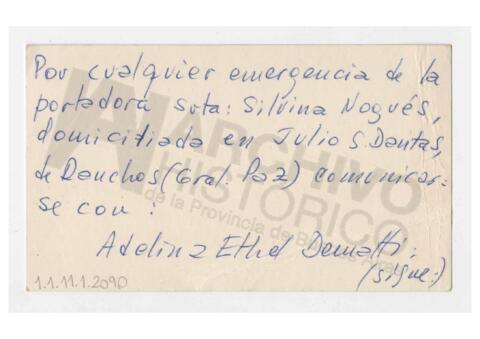 Por cualquier emergencia de la
portadora srta: Silvina Nogués,
domiciliada en Julio S. Dantas,
de Ranchos (Gral. Paz) comunicar=
se con:
Adelina Ethel Dematti;
(sigue:)
1.1.11.1.2090
ARCHIVO
HISTÓRICO
de la Provincia de Buenos Aires